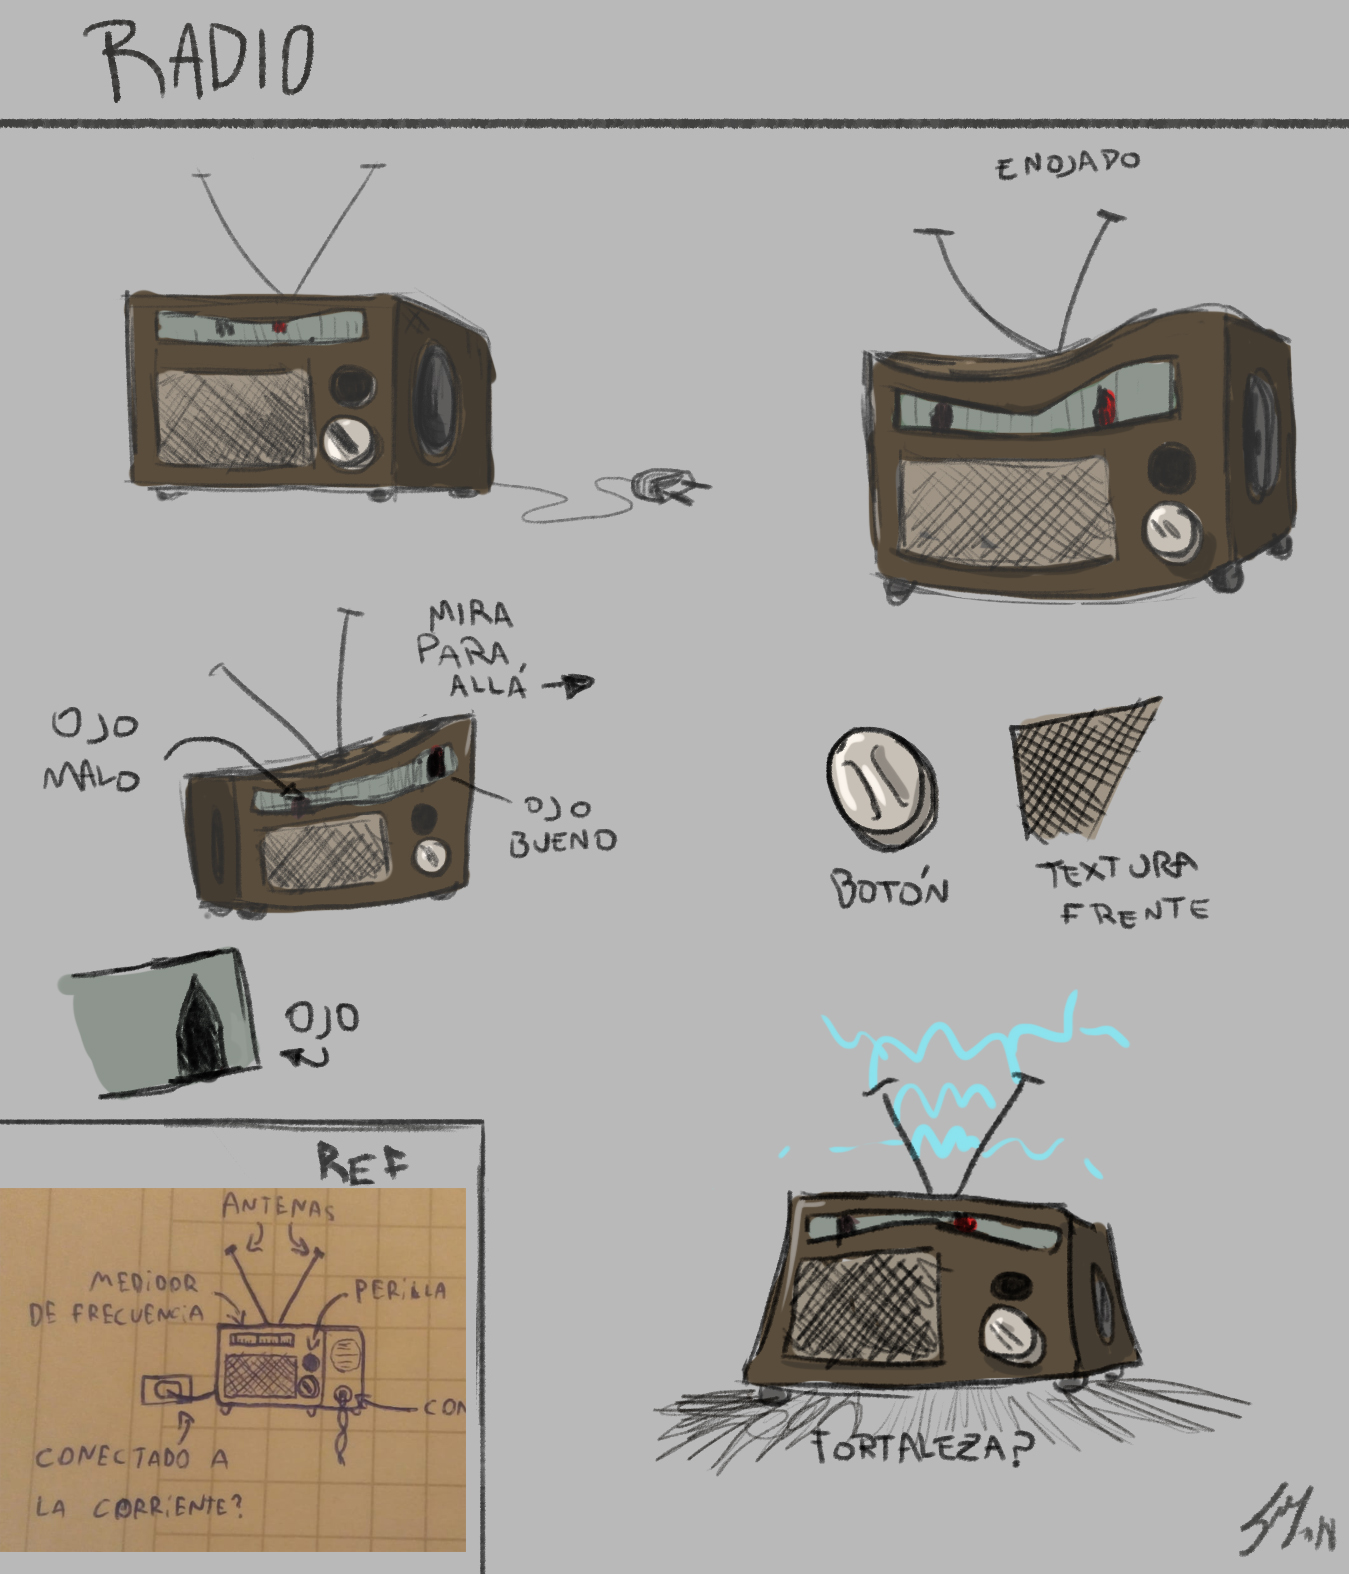 RADIO
ENOJADO
MIRA
PARA
ALLÁ
OJO
MALO
OJO
BUENO
BOTÓN
TEXTURA
FRENTE
OJO
REF
ANTENAS
MEDIDOR
DE FRECUENCIA
PERILLA
CON
CONECTADO A
LA CORRIENTE?
FORTALEZA?